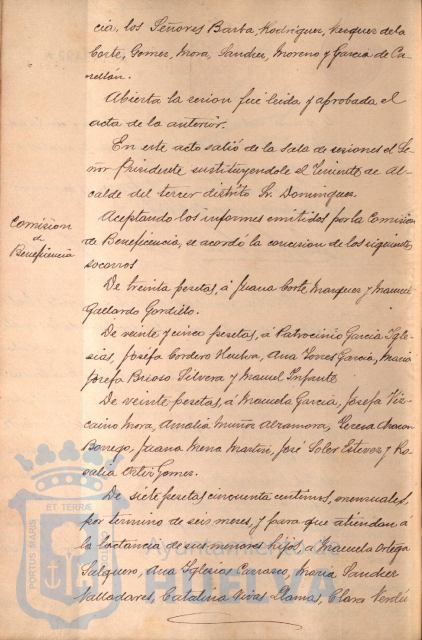 cia, los Señores Barba, Rodriguez, Vazquez de la
Corte, Gomez, Mora, Sanchez, Moreno y Garcia de Ca-
stellón.
Abierta la sesion fué leida y aprobada el
acta de la anterior.
En este acto salió de la Sala de sesiones el Se-
ñor Presidente sustituyendole el Teniente de Al-
calde del tercer distrito Sr. Dominguez.
Comision
de
Beneficencia
Aceptando los informes emitidos por la Comision
de Beneficencia, se acordó la concesion de los siguientes
socorros
De treinta pesetas, á Juana Corte Marquez y Manuel
Gallardo Gordillo.
De veinte y cinco pesetas, á Patrocinio Garcia Igle-
sias, Josefa Cordero Huelva, Ana Torres Garcia, Maria
Josefa Brioso Silvera y Manuel Infante
De veinte pesetas, á Manuela Garcia, Josefa Viz-
caino Mora, Amalia Muñoz Teresa
Borrego, Juana Mena Martin, José Soler Estevez y Ro-
salia Ortiz Gomez.
De siete pesetas cincuenta centimos, mensuales,
por término de seis meses, y para que atiendan á
la lactancia de sus menores hijos, á Manuela Ortega
Salguero, Ana Iglesias Carrasco, Maria Sanchez
Valladares, Catalina Vivas Llamas, Clara Verdú
PORTUS MARIS
ET TERRÆ
CUSTODIA
Ayuntamiento de
HUELVA